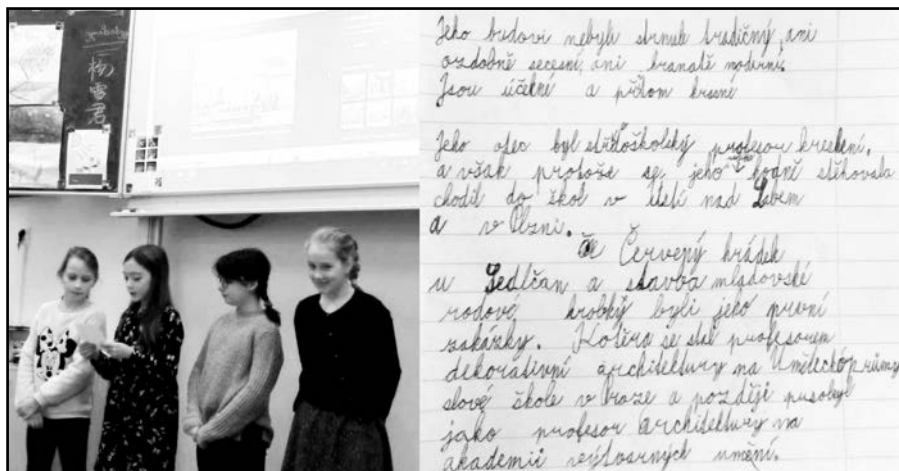 杨雪君
Jeho budovi nebyli strnule tradičný, ani
ozdobně secesní, ani hranatě moderní.
Jsou účelní a přitom krasné
Jeho otec byl středoškolský profesor kreslení,
a však protože se jeho hodně stěhovala
chodil do škol v Ústí nad Labem
a v Plzni.
Červený hrádek
u Sedlčan a stavba mladovské
rodové hrobký byli jeho první
zakázky. Kotěra se stal profesorem
dekorativní architektury na Uměleckoprůmy
slové škole v Praze a později pusobyl
jako profesor architektury na
akademii výtvarných umění.